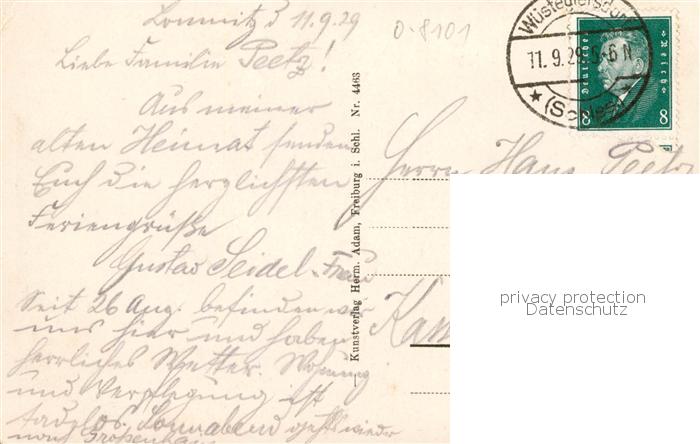 Lomnitz d 11.9.29
0-8101
Liebe Familie Peetz!
Aus meiner
alten Heimat senden
Euch die herzlichsten
Feriengrüße
Gustav Seidel. Frau
Seit 26 Aug. befinden wir
uns hier und haben
herrliches Wetter. Wohnung
und Verpflegung ist
tadellos. Sonnabend geht's wieder
nach Großenhain
Kunstverlag Herm. Adam, Freiburg i. Schl. Nr. 4463
Wüstegiersdorf
11.9.29.5-6 N
(Schles)
Deutsches Reich
8 8
Herrn Hans Peetz
privacy protection
Datenschutz